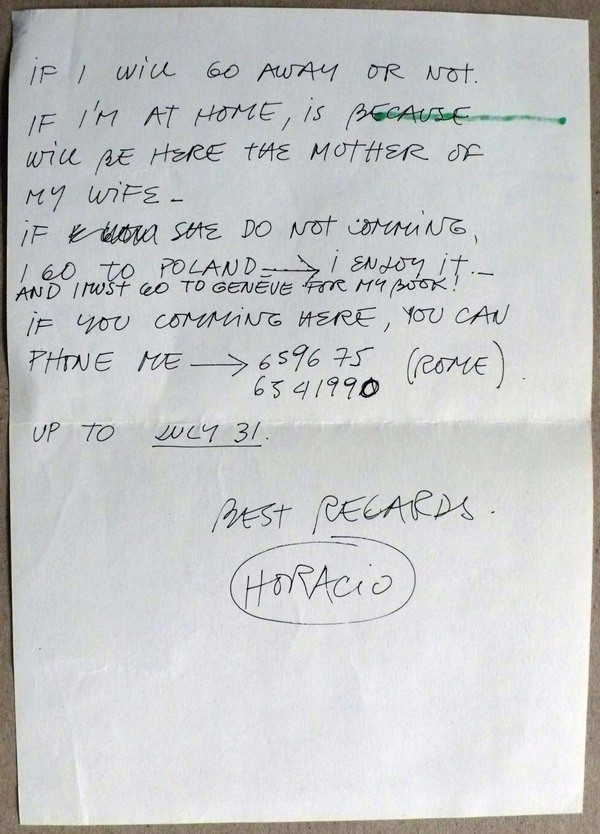 IF I WILL GO AWAY OR NOT.
IF I'M AT HOME, IS BECAUSE
WILL BE HERE THE MOTHER OF
MY WIFE -
IF SHE DO NOT COMMING,
I GO TO POLAND → I ENJOY IT. -
AND I MUST GO TO GENEVE FOR MY BOOK!
IF YOU COMMING HERE, YOU CAN
PHONE ME → 659675 (ROME).
6541990
UP TO JULY 31.
BEST REGARDS.
HORACIO